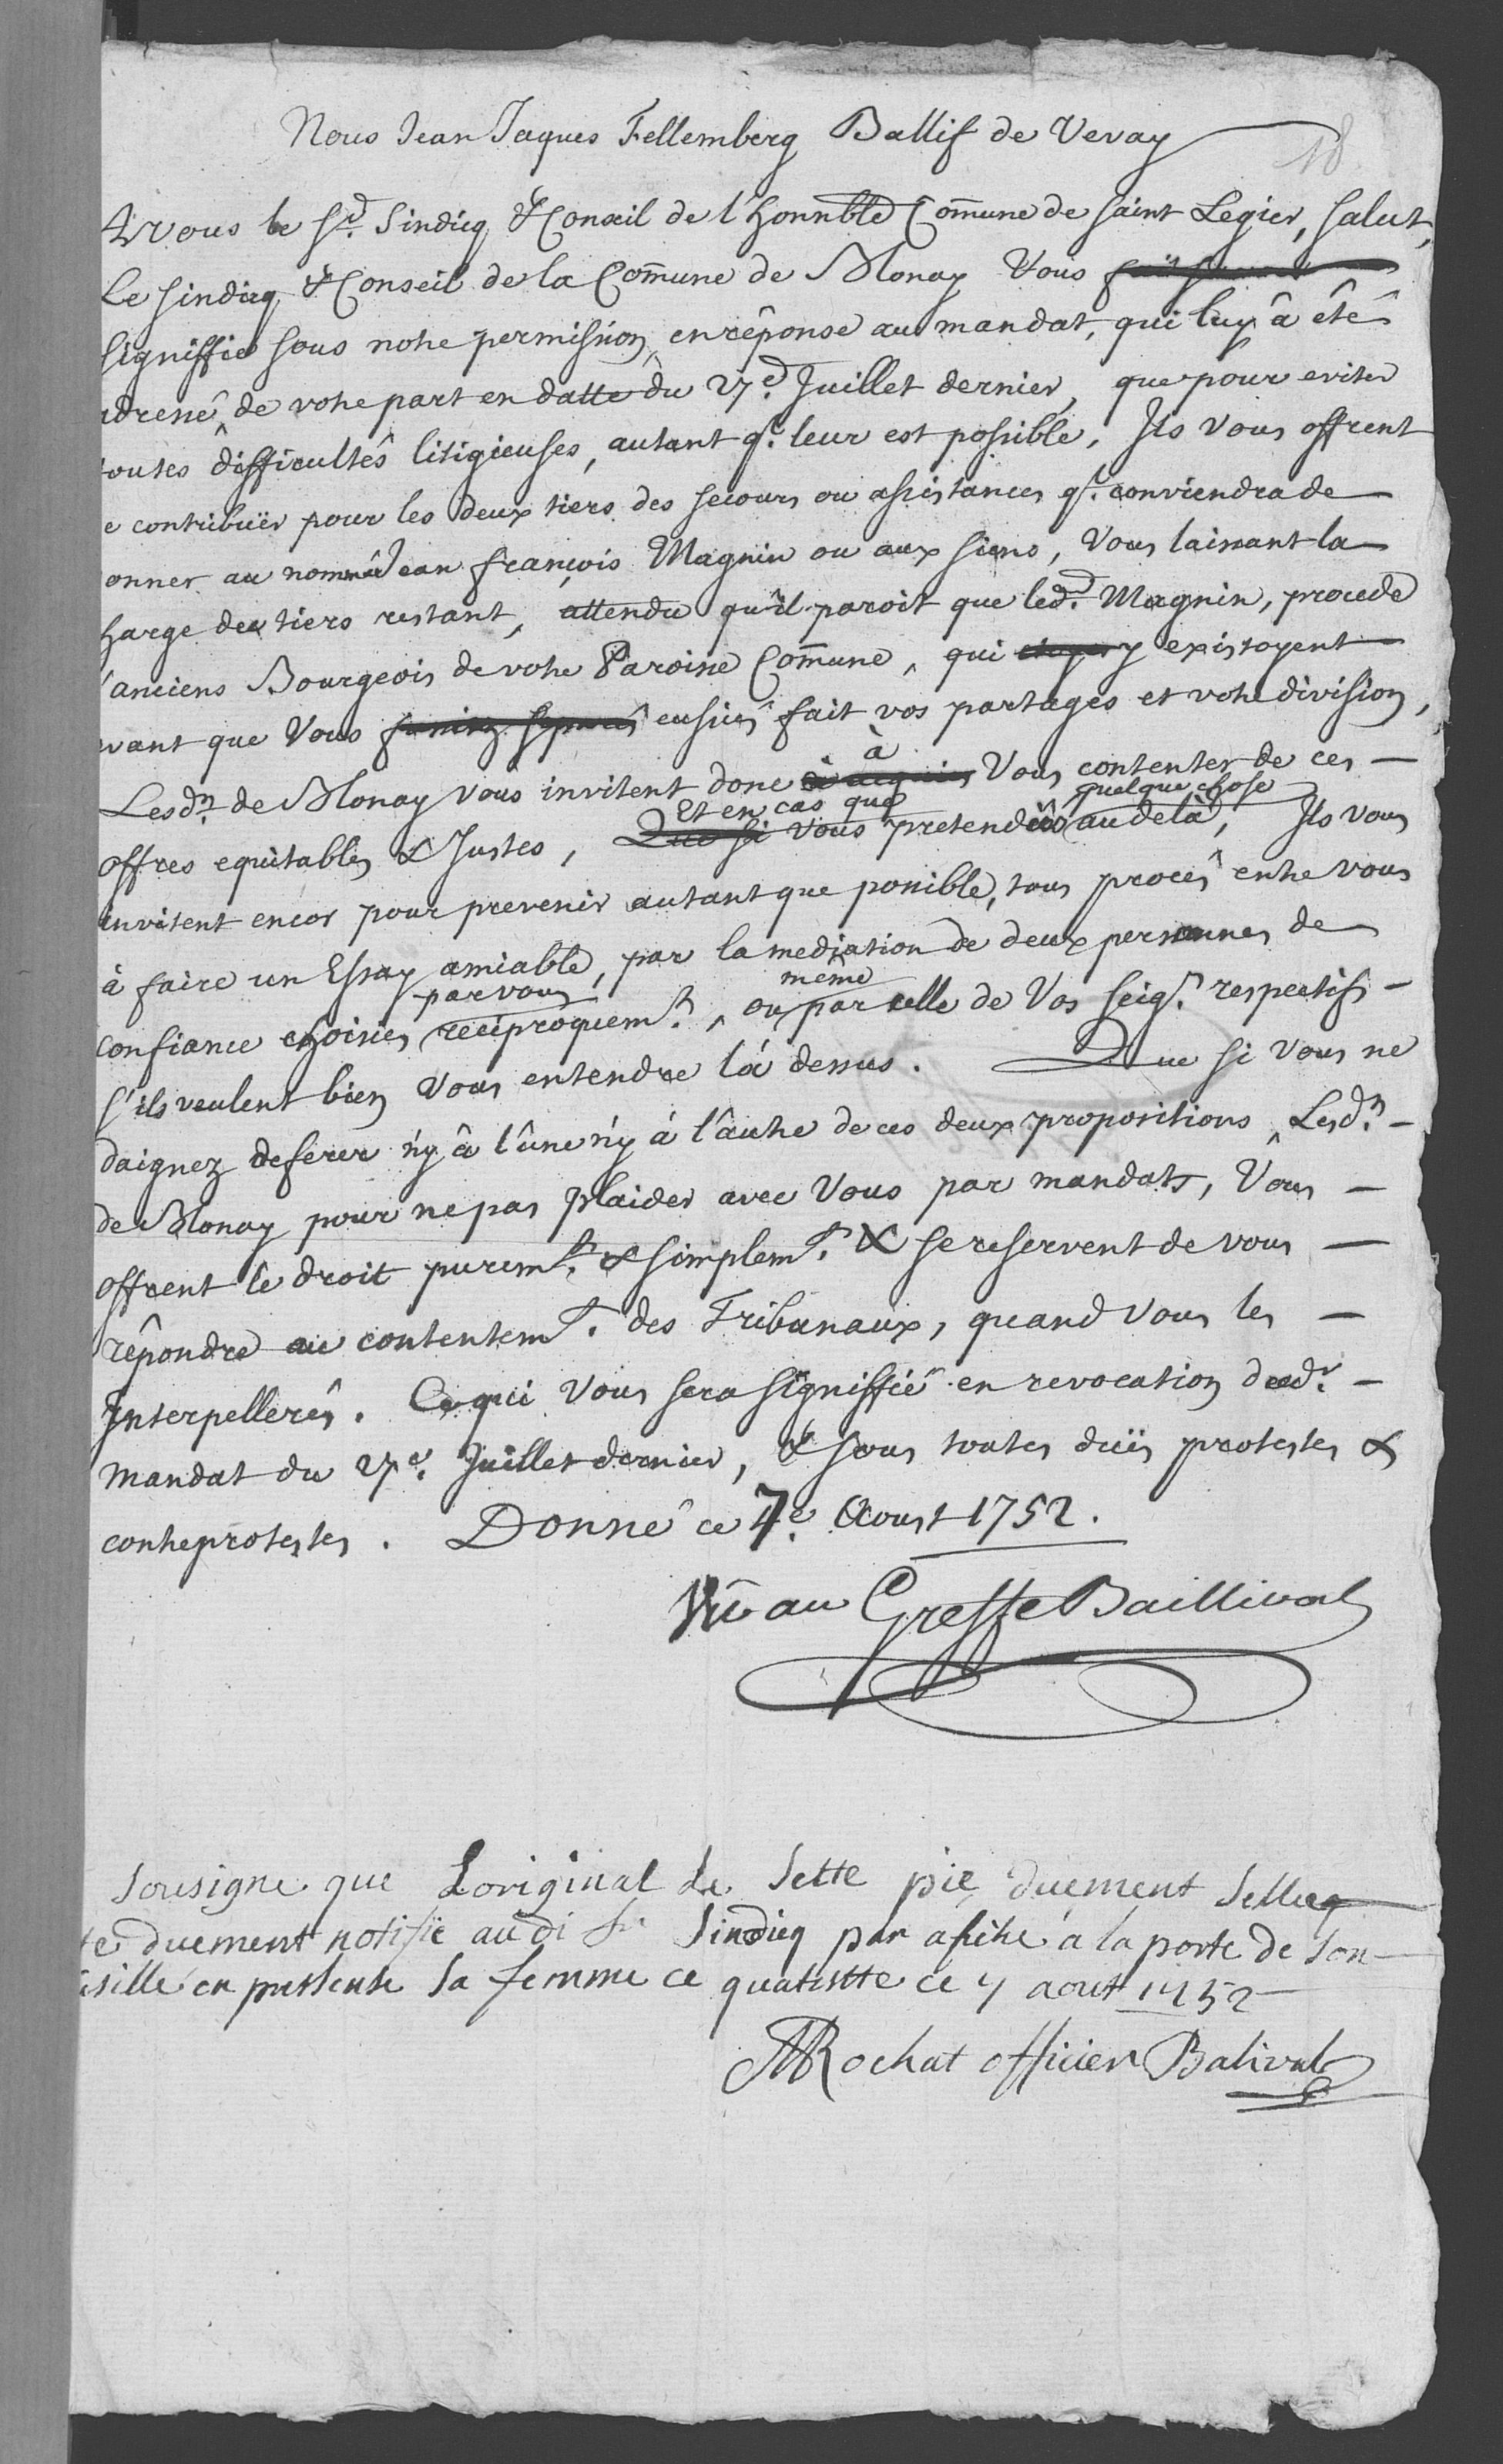 Nous Jean Jaques Fellemberg Ballif de Vevay
18
A vous le Sr. Sindicq & Conseil de l'honnble Com̄une de Saint Legier, salut,
Le Sindicq & Conseil de la Com̄une de Blonay Vous
signiffie sous notre permission, en rêponse au mandat, qui luy â êtê
adressê de votre part en datte du 27e. Juillet dernier, que pour eviter
toutes difficultês litigieuses, autant q'. leur est possible, Ils vous offrent
e contribuër pour les deux tiers des secours ou assistances q'. conviendra de
onner au nommé Jean françois Magnin ou aux siens, Vous laissant la
harge du tiers restant, attendu qu'il paroit que led. Magnin, procede
d'anciens Bourgeois de votre Paroisse Com̄une, qui y existoyent
avant que Vous eussiés fait vos partages et votre division,
Lesdts. de Blonay vous invitent donc à Vous contenter de ces
offres equitables & Justes, Et en cas que vous pretendiés quelque chose au delà, Ils vous
invitent encor pour prevenir autant que possible, tous procês entre vous
à faire un Essay amiable, par la mediation de deux personnes de
confiance choisies par vous reciproquemt., ou par celle même de Vos Seigrs. respectifs
s'ils veulent bien Vous entendre là dessus. Que si Vous ne
daignez deferer n'y â l'ûne n'y à l'âutre de ces deux propositions, Lesdts.
de Blonay pour ne pas plaider avec Vous par mandats, Vous
offrent le droit puremt. & simplemt. & se reservent de vous
rêpondre au contentemt. des Tribunaux, quand Vous les
Interpellerês. Ce qui Vous sera signiffié en revocation dudt.
mandat du 27e. Juillet dernier, & sous toutes duës protestes &
contreprotestes. Donné ce 7e. Aoust 1752.
Vû au Greffe Baillival
sousigne que Loriginal de sette pie duement sellee
te duement notifié audi Sr Sindicq par afiche à la porte de son
sille en pressense sa femme ce 7 aout 1752
Rochat officier Balival